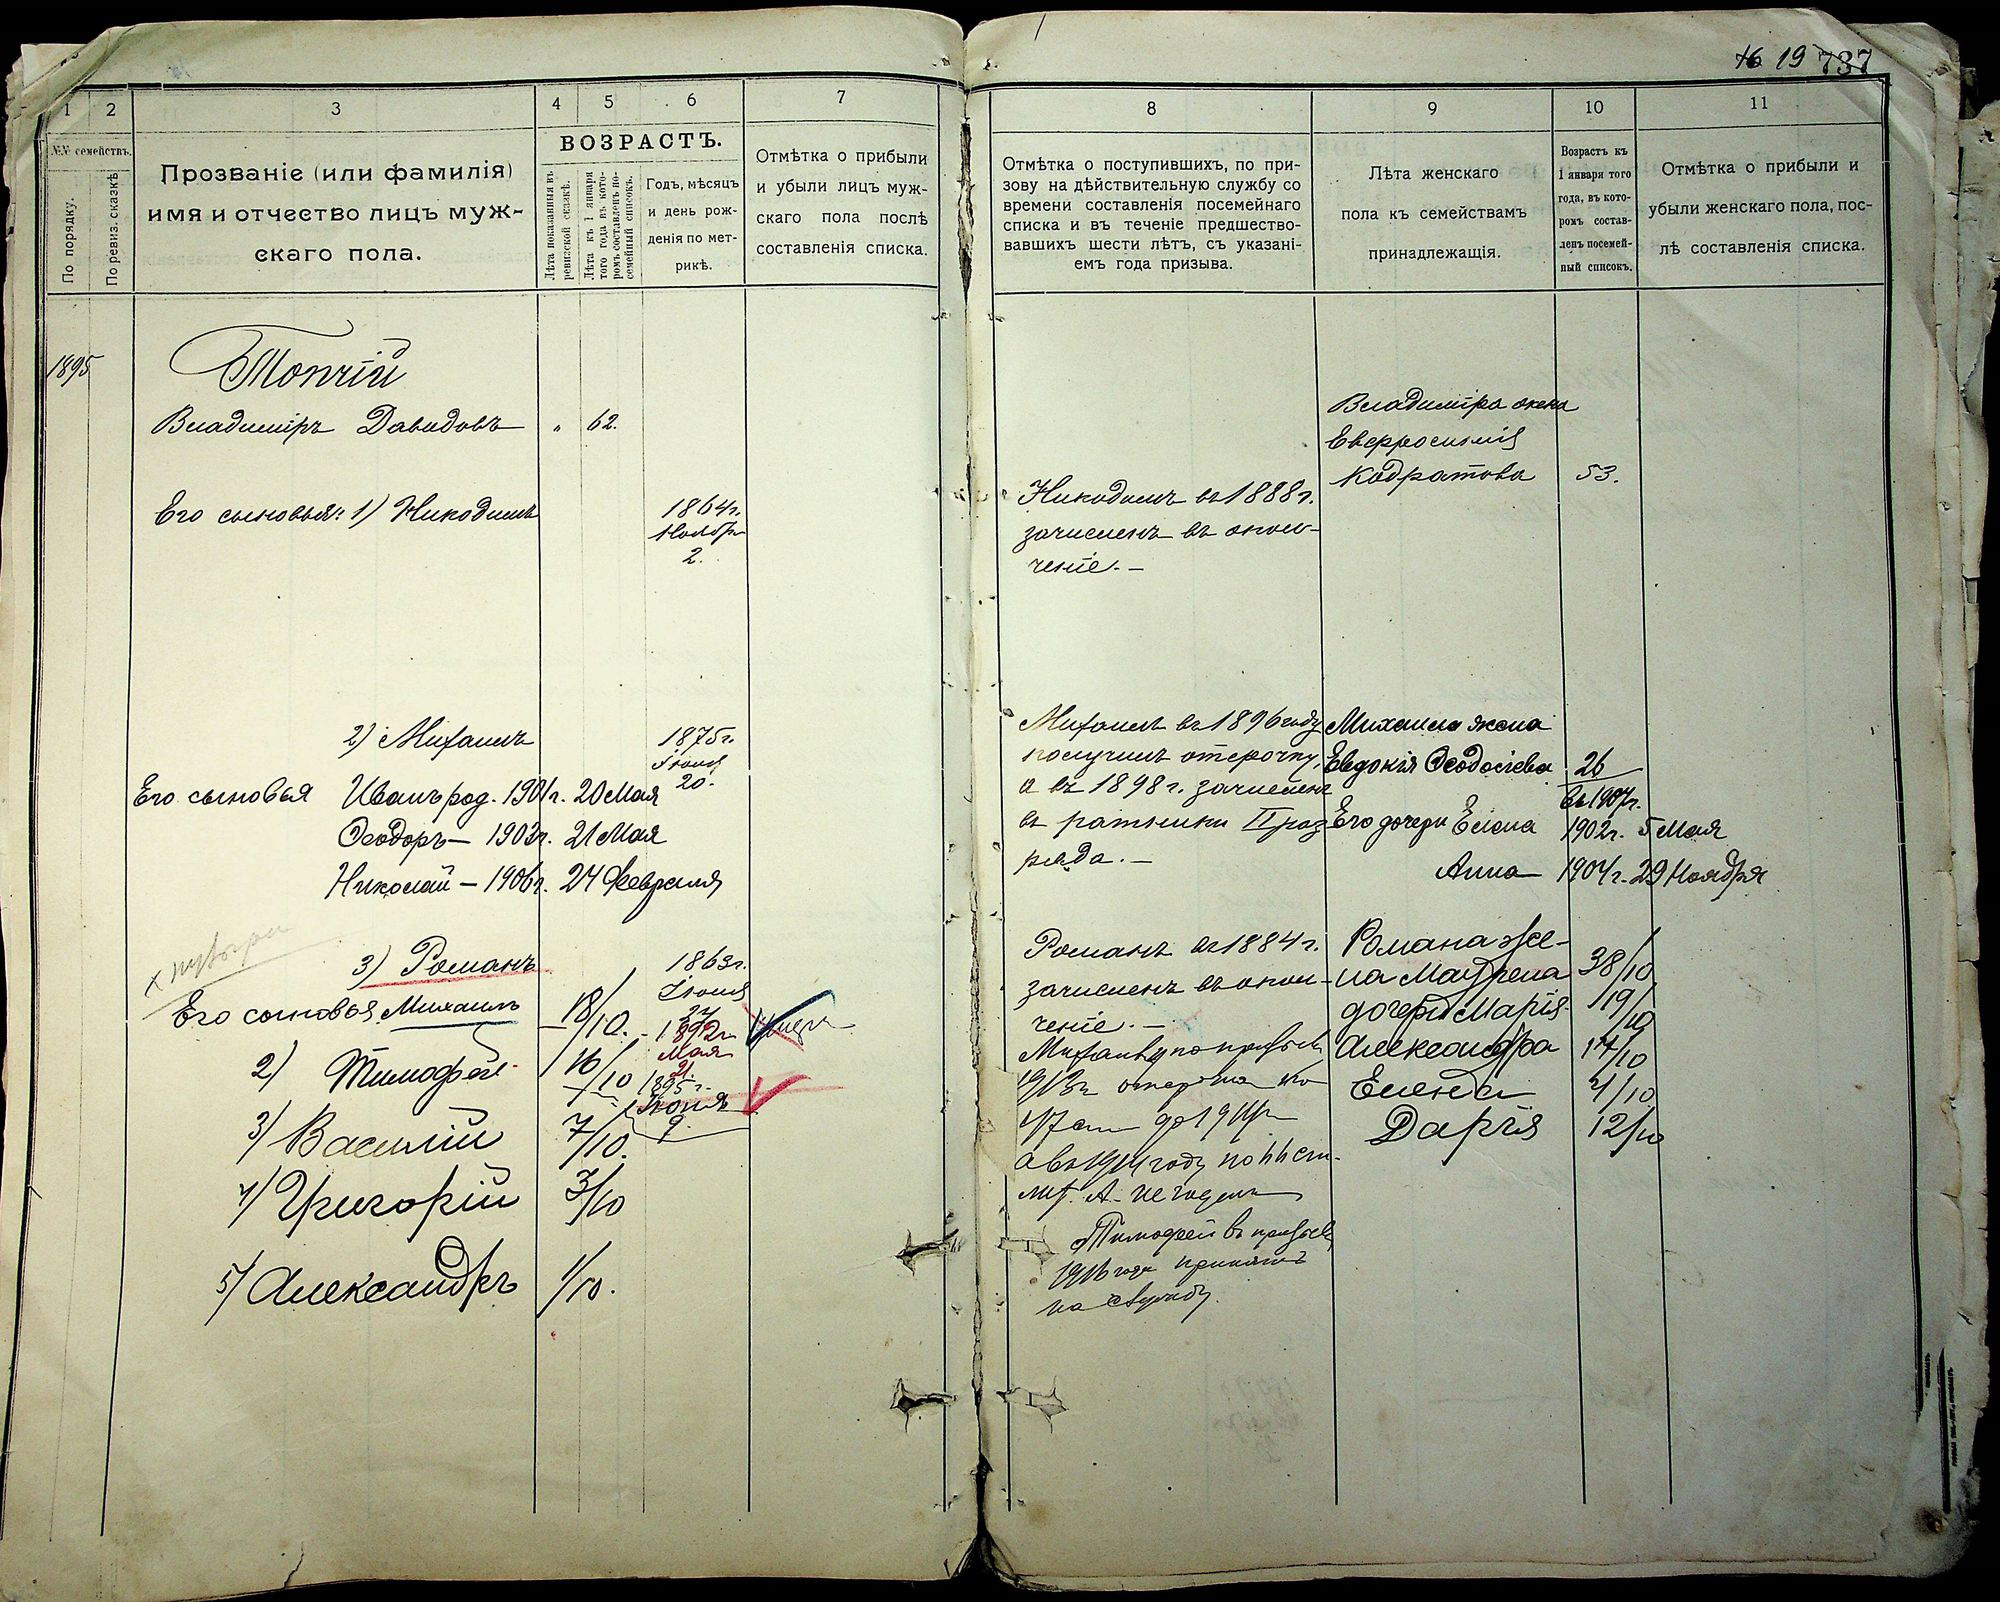 16 19 737
1 2 3 4 5 6 7
№№ семействъ.
По порядку.
По ревиз. сказкѣ
Прозваніе (или фамилія)
имя и отчество лицъ муж-
скаго пола.
ВОЗРАСТЪ.
Лѣта показанныя въ
ревизской сказкѣ.
Лѣта къ 1 января
того года въ кото-
ромъ составленъ по-
семейный списокъ.
Годъ, мѣсяцъ
и день рож-
денія по мет-
рикѣ.
Отмѣтка о прибыли
и убыли лицъ муж-
скаго пола послѣ
составленія списка.
1895
Топчій
Владиміръ Давидовъ " 62.
Его сыновья: 1) Никодимъ
1864 г.
Ноября
2.
2) Михаилъ
1875 г.
Іюня
20.
Его сыновья Иванъ род. 1901 г. 20 Мая
Ѳеодоръ — 1903 г. 21 Мая
Николай — 1906 г. 24 Февраля
3) Романъ
1863 г.
Іюня
27
Его сыновья Михаилъ 18/10.
1892 г.
Мая
21.
2) Тимофей 16/10
1895 г.
Іюня
9.
3) Василій 7/10.
4) Григорій 3/10
5) Александръ 1/10.
8 9 10 11
Отмѣтка о поступившихъ, по при-
зову на дѣйствительную службу со
времени составленія посемейнаго
списка и въ теченіе предшество-
вавшихъ шести лѣтъ, съ указані-
емъ года призыва.
Лѣта женскаго
пола къ семействамъ
принадлежащія.
Возрастъ къ
1 января того
года, въ кото-
ромъ состав-
ленъ посемей-
ный списокъ.
Отмѣтка о прибыли и
убыли женскаго пола, пос-
лѣ составленія списка.
Владиміра жена
Евфросинія
Кодратова 53.
Никодимъ въ 1888 г.
зачисленъ въ опол-
ченіе. —
Михаилъ въ 1896 году
получилъ отсрочку,
а въ 1898 г. зачисленъ
въ ратники II раз-
ряда. —
Михаила жена
Евдокія Ѳеодосіева 26
въ 1907 г.
Его дочери Елена 1902 г. 5 Мая
Анна 1904 г. 29 Ноября
Романъ въ 1884 г.
зачисленъ въ опол-
ченіе. —
Романа же-
на Маврена 38/10
дочери Марія 19/10
Александра 14/10
Елена 4/10
Дарія 12/10
а въ 1914 году по 44 ст.
лит. А. не годенъ
Тимофей въ призывъ
1916 года принятъ
на службу.